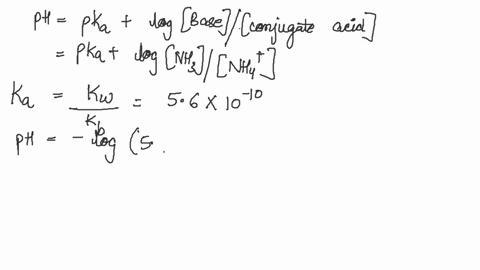 pH = pKa + log [Base]/[conjugate acid]
= pKa + log [NH3]/[NH4+]
Ka = Kw/Kb = 5.6 × 10^-10
pH = - log (5.